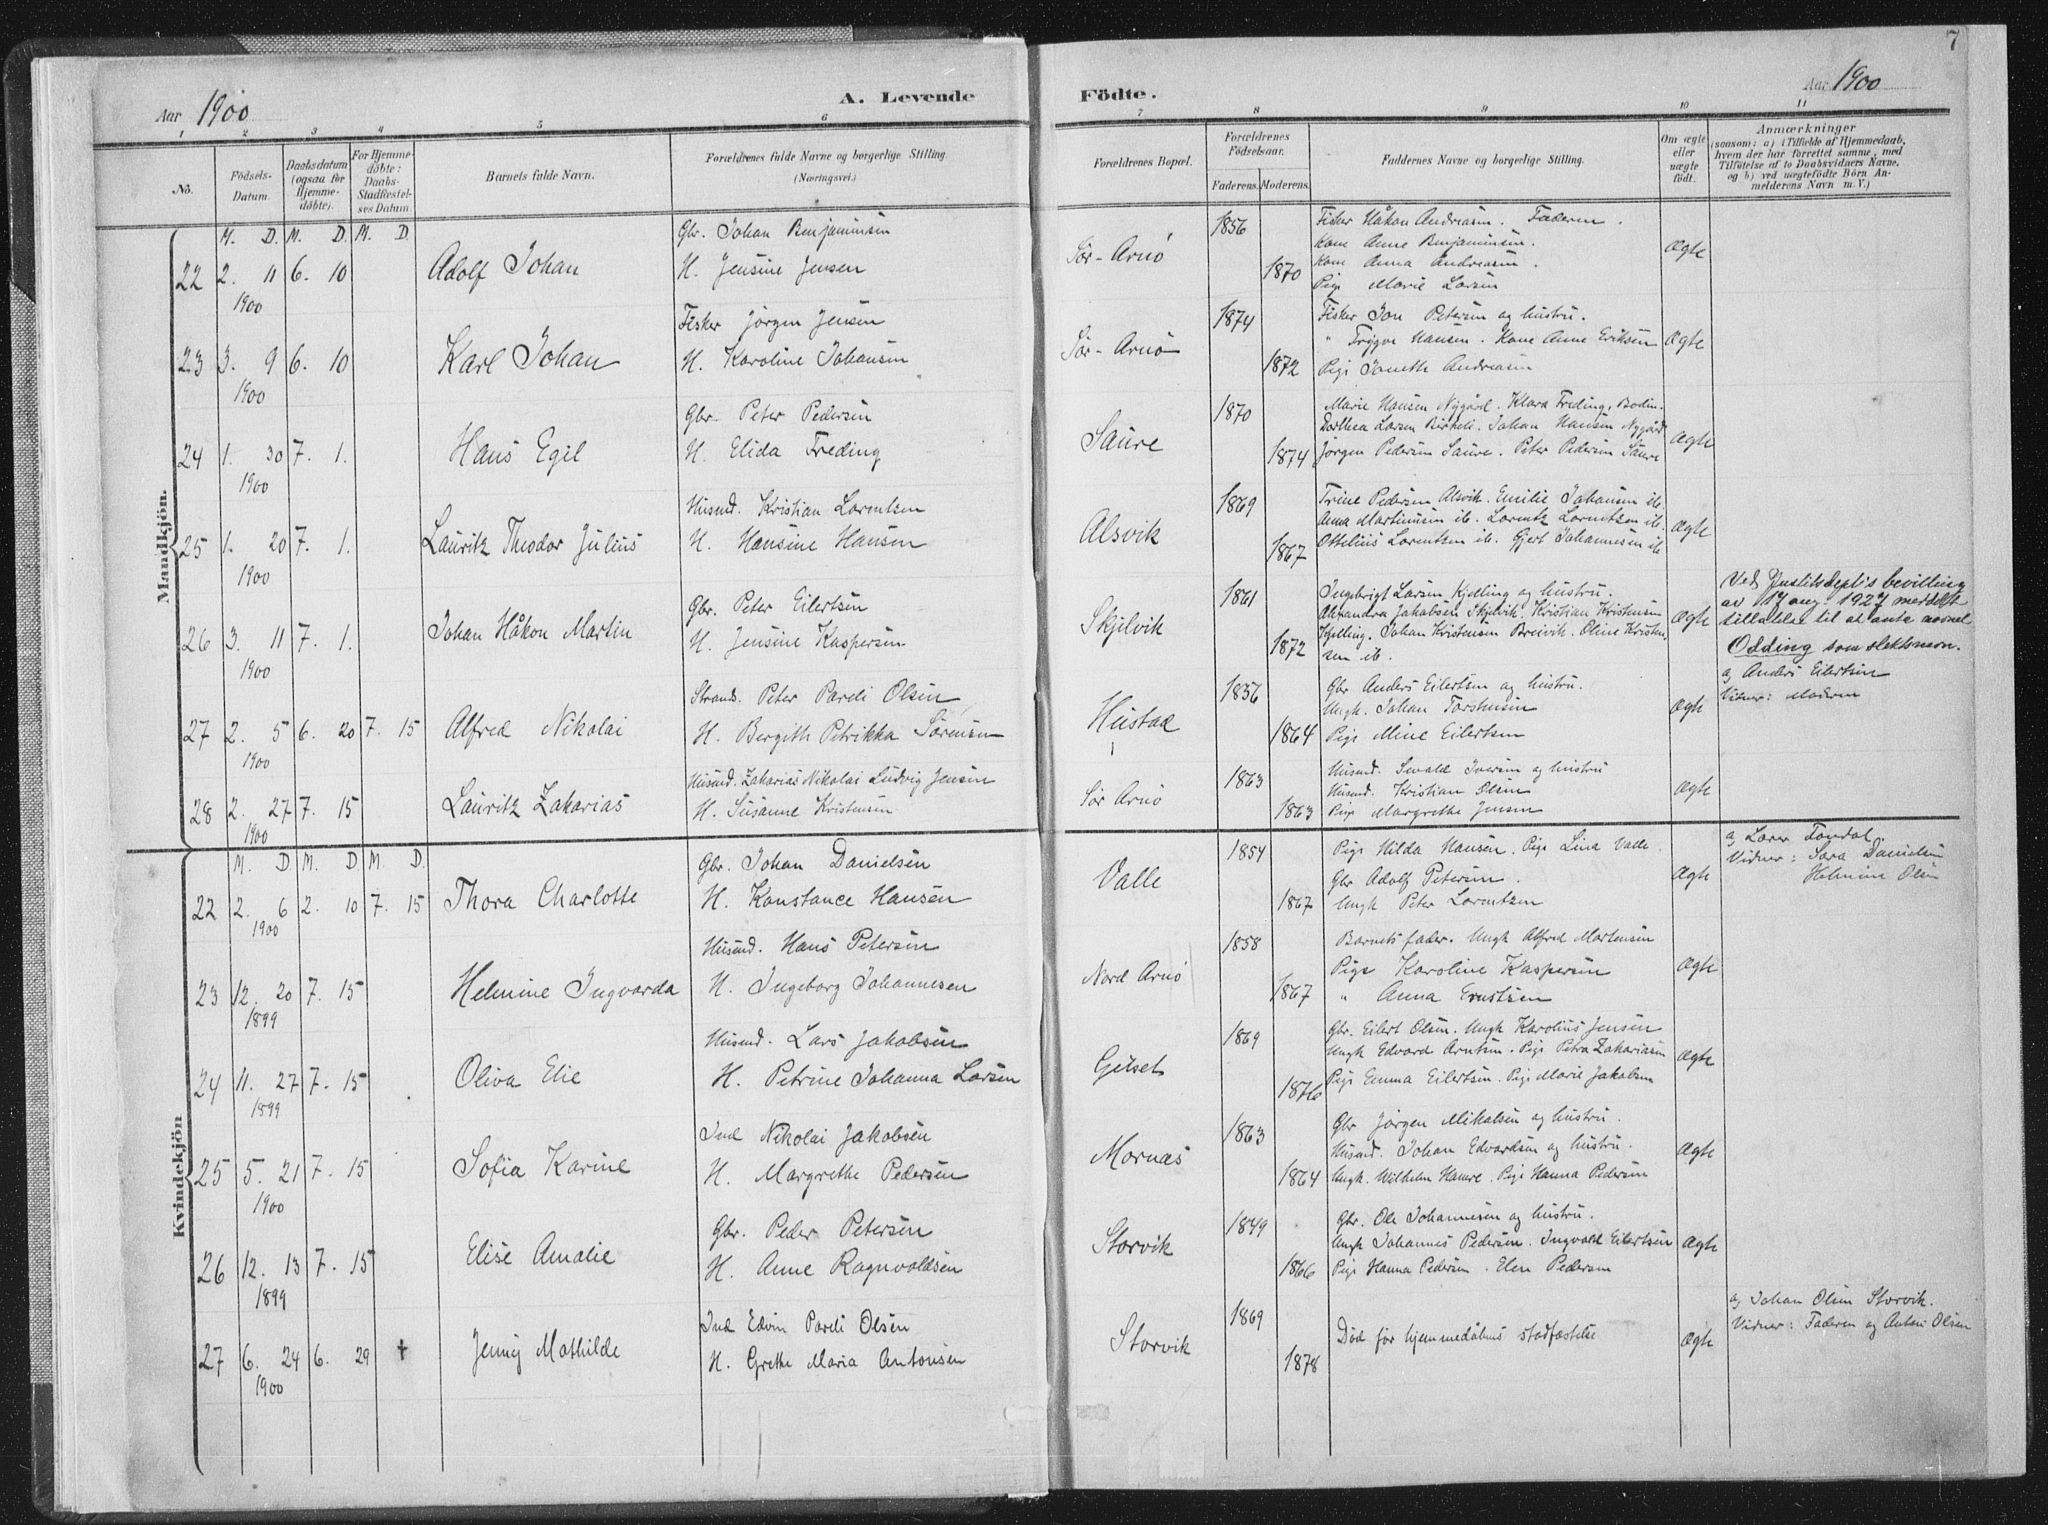 7
Aar 1900
A. Levende
Födte.
Aar 1900
1 2 3 4 5 6 7 8 9 10 11
No.
Födsels-Datum.
Daabsdatum (ogsaa for Hjemmedöbte).
For Hjemmedöbte: Daabs-Stadfæstelses Datum.
Barnets fulde Navn.
Forældrenes fulde Navne og borgerlige Stilling (Næringsvei.)
Forældrenes Bopæl.
Forældrenes Födselsaar.
Faderens. Moderens.
Faddernes Navne og borgerlige Stilling.
Om ægte eller uægte födt.
Anmærkninger
(saasom: a) i Tilfælde af Hjemmedaab, hvem der har forrettet samme, med Tilföielse af to Daabsvidners Navne. og b) ved uægtefödte Börn Anmelderens Navn m. V.)
Mandkjön.
M. D. M. D. M. D.
22 2. 11 1900 6. 10 Adolf Johan
Gbr. Johan Benjaminsen
H. Jensine Jensen
Sør-Arnø 1856 1870
Fisker Håkon Andreasen. Faderen.
Kone Anne Benjaminsen.
Kone Anna Andreasen.
Pige Marie Larsen
Ægte
23 3. 9 1900 6. 10 Karl Johan
Fisker Jørgen Jensen
H. Karoline Johansen
Sør-Arnø 1874 1872
Fisker Jon Petersen og hustru.
" Trygve Hansen. Kone Anne Eriksen
Pige Janeth Andreasen
Ægte
24 1. 30 1900 7. 1. Hans Egil
Gbr. Peter Pedersen
H. Elida Freding
Saure 1870 1874
Marie Hansen Nygård. Klara Freding, Bodin.
Dorthea Larsen Birkeli. Johan Hansen Nygård
Jørgen Pedersen Saure. Peter Pedersen Saure
Ægte
25 1. 20 1900 7. 1. Lauritz Theodor Julius
Husmd. Kristian Lorentsen
H. Hansine Hansen
Alsvik 1869 1867
Trine Pedersen Alsvik. Emilie Johansen ib.
Anna Martinusen ib. Lorentz Lorentsen ib.
Ottelius Lorentsen ib. Gjert Johannesen ib
Ægte
26 3. 11 1900 7. 1. Johan Håkon Martin
Gbr. Peter Eilertsen
H. Jensine Kaspersen
Skjelvik 1861 1872
Ingebrigt Larsen Kjelling og hustru.
Alexandra Jakobsen Skjelvik. Kristian Kristensen
Kjelling. Johan Kristensen Breivik. Oline Kristen
sen ib.
Ægte
Ved Justitsdept's bevilling
av 17 aug. 1927 meddelt
tillatelse til at anta navnet
Odding som slektsnavn.
27 2. 5 1900 6. 20 7. 15 Alfred Nikolai
Strands. Peter Pareli Olsen
H. Bergith Petrikka Sørensen
Hustad 1856 1864
Gbr Anders Eilertsen og hustru.
Ungk. Johan Torstensen
Pige Mine Eilertsen
Ægte
a, Anders Eilertsen
Vidner: Moderen
28 2. 27 1900 7. 15 Lauritz Zakarias
Husmd. Zakarias Nikolai Ludvig Jensen
H. Susanne Kristensen
Sør Arnø 1863 1863
Husmd. Sevald Iversen og hustru
Husmd. Kristian Olsen
Pige Margrethe Jensen
Ægte
Kvindekjön
M. D. M. D. M. D.
22 2. 6 1900 2. 10 7. 15 Thora Charlotte
Gbr. Johan Danielsen
H. Konstance Hansen
Valle 1854 1867
Pige Hilda Hansen. Pige Lina Valle.
Gbr Adolf Petersen.
Ungk Peter Lorentzen
Ægte
a, Lærer Tondal.
Vidner: Sara Danielsen
Helmine Olsen
23 12. 20 1899 7. 15 Helmine Ingvarda
Husmd. Hans Petersen
H. Ingeborg Johannesen
Nord Arnø 1858 1867
Barnets fader. Ungk Alfred Mortensen
Pige Karoline Kaspersen
" Anna Ernstsen
Ægte
24 11. 27 1899 7. 15 Oliva Elie
Husmd. Lars Jakobsen
H. Petrine Johanna Larsen
Gilset 1869 1876
Gbr. Eilert Olsen. Ungk Karolius Jensen
Ungk Edvard Arntsen. Pige Petra Zakariasen
Pige Emma Eilertsen. Pige Marie Jakobsen
Ægte
25 5. 21 1900 7. 15 Sofia Karine
Ind Nikolai Jakobsen
H. Margrethe Pedersen
Mornæs 1863 1864
Gbr Jørgen Mikalsen og hustru.
Husmd. Johan Edvardsen og hustru.
Ungk. Wilhelm Hamre. Pige Hanna Pedersen
Ægte
26 12. 13 1899 7. 15 Elise Amalie
Gbr. Peder Petersen
H. Anne Ragnvaldsen
Storvik 1849 1866
Gbr. Ole Johannesen og hustru.
Ungk Johannes Pedersen. Ingvald Eilertsen
Pige Hanna Pedersen. Elen Pedersen
Ægte
27 6. 24 1900 6. 29 † Jenny Mathilde
Ind Edvin Pareli Olsen
H. Grethe Maria Antonsen
Storvik 1869 1878
Død før hjemmedåbens stadfæstelse
Ægte
a, Johan Olsen Storvik.
Vidner: Faderen og Anton Olsen